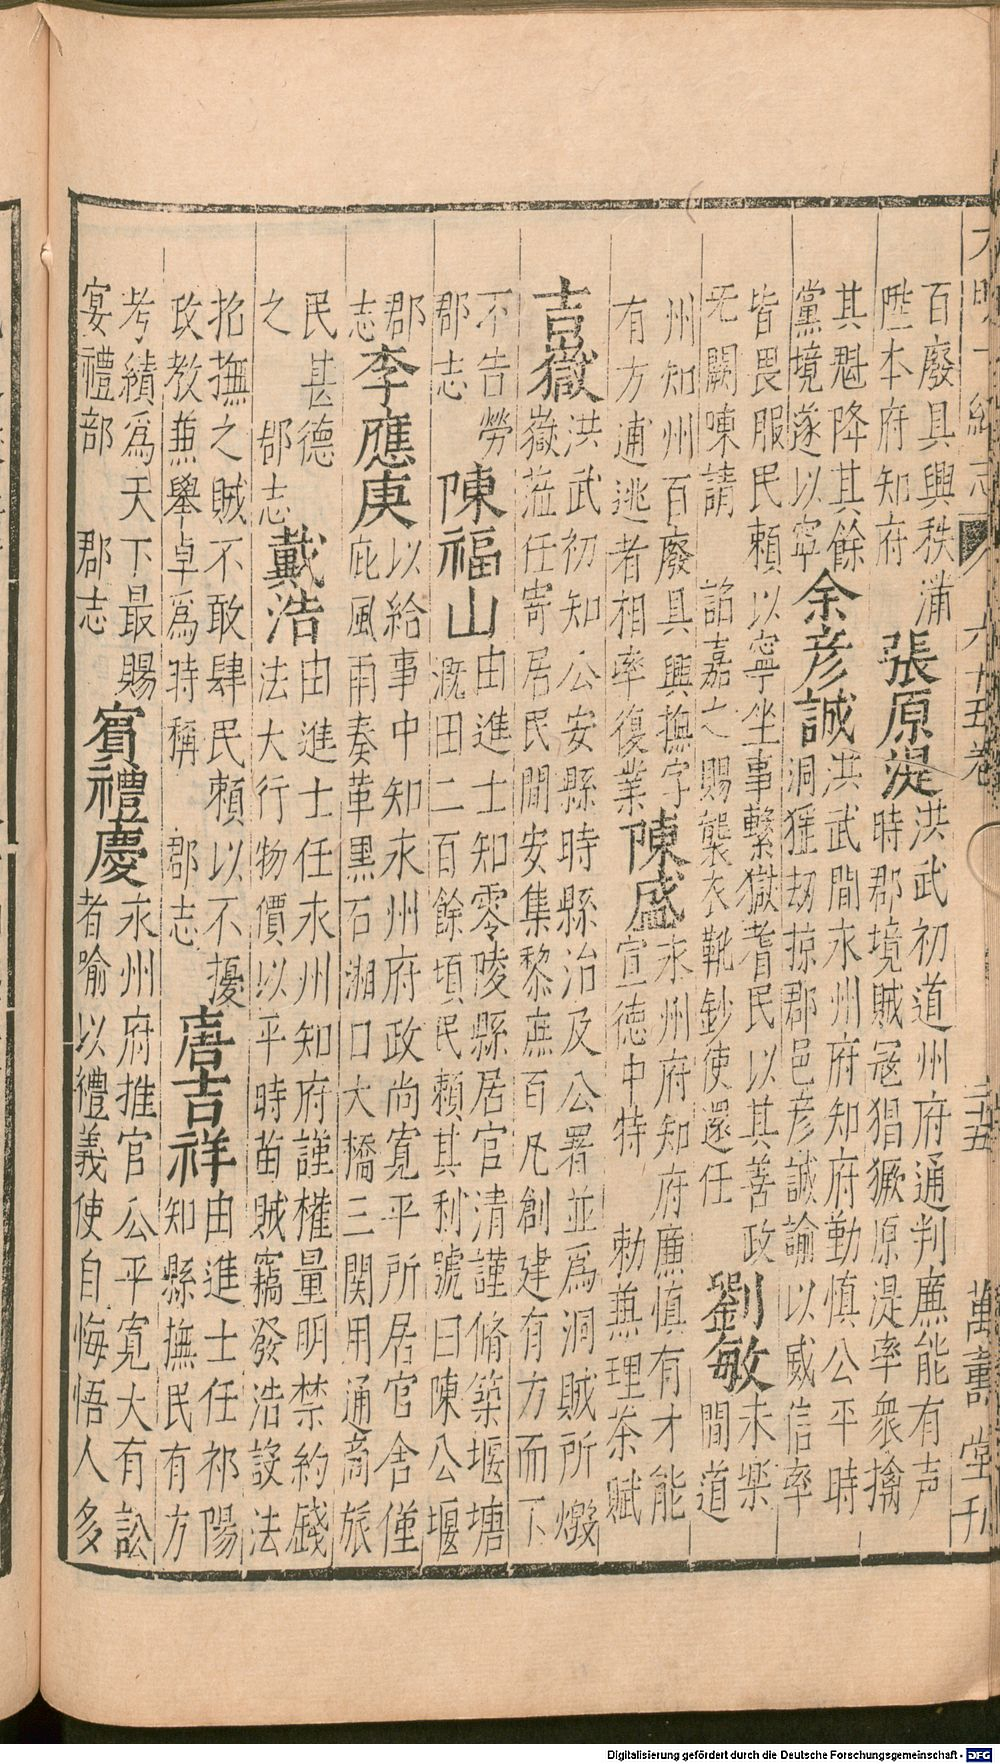 大明一統志 六十五卷 二十五 萬壽堂刋
百廢具興秩滿
陞本府知府
張原湜
洪武初道州府通判廉能有声
時郡境賊冦猖獗原湜率衆擒
其魁降其餘
黨境遂以寧
余彦誠
洪武間永州府知府勤慎公平時
洞猺刼掠郡邑彦誠諭以威信率
皆畏服民頼以寧坐事繫獄耆民以其善政
无闕陳請 詔嘉之賜襲衣靴鈔使還任
劉敏
永樂
間道
州知州百廢具興撫字
有方逋逃者相率復業
陳盛
永州府知府廉慎有才能
宣德中特 勅兼理茶賦
吉嶽
洪武初知公安縣時縣治及公署並爲洞賊所燬
嶽蒞任寄居民間安集黎庶百凡創建有方而下
不告勞
郡志
陳福山
由進士知零陵縣居官清謹脩築堰塘
溉田二百餘頃民頼其利號曰陳公堰
郡
志
李應庚
以給事中知永州府政尚寛平所居官舎僅
庇風雨奏革黒石湘口大橋三関用通商旅
民甚德
之 郡志
戴浩
由進士任永州知府謹權量明禁約錢
法大行物價以平時苗賊竊發浩設法
招撫之賊不敢肆民頼以不擾
政教兼舉卓爲時稱 郡志
唐吉祥
由進士任祁陽
知縣撫民有方
考績爲天下最賜
宴禮部 郡志
賔禮慶
永州府推官公平寛大有訟
者喻以禮義使自悔悟人多
Digitalisierung gefördert durch die Deutsche Forschungsgemeinschaft - DFG